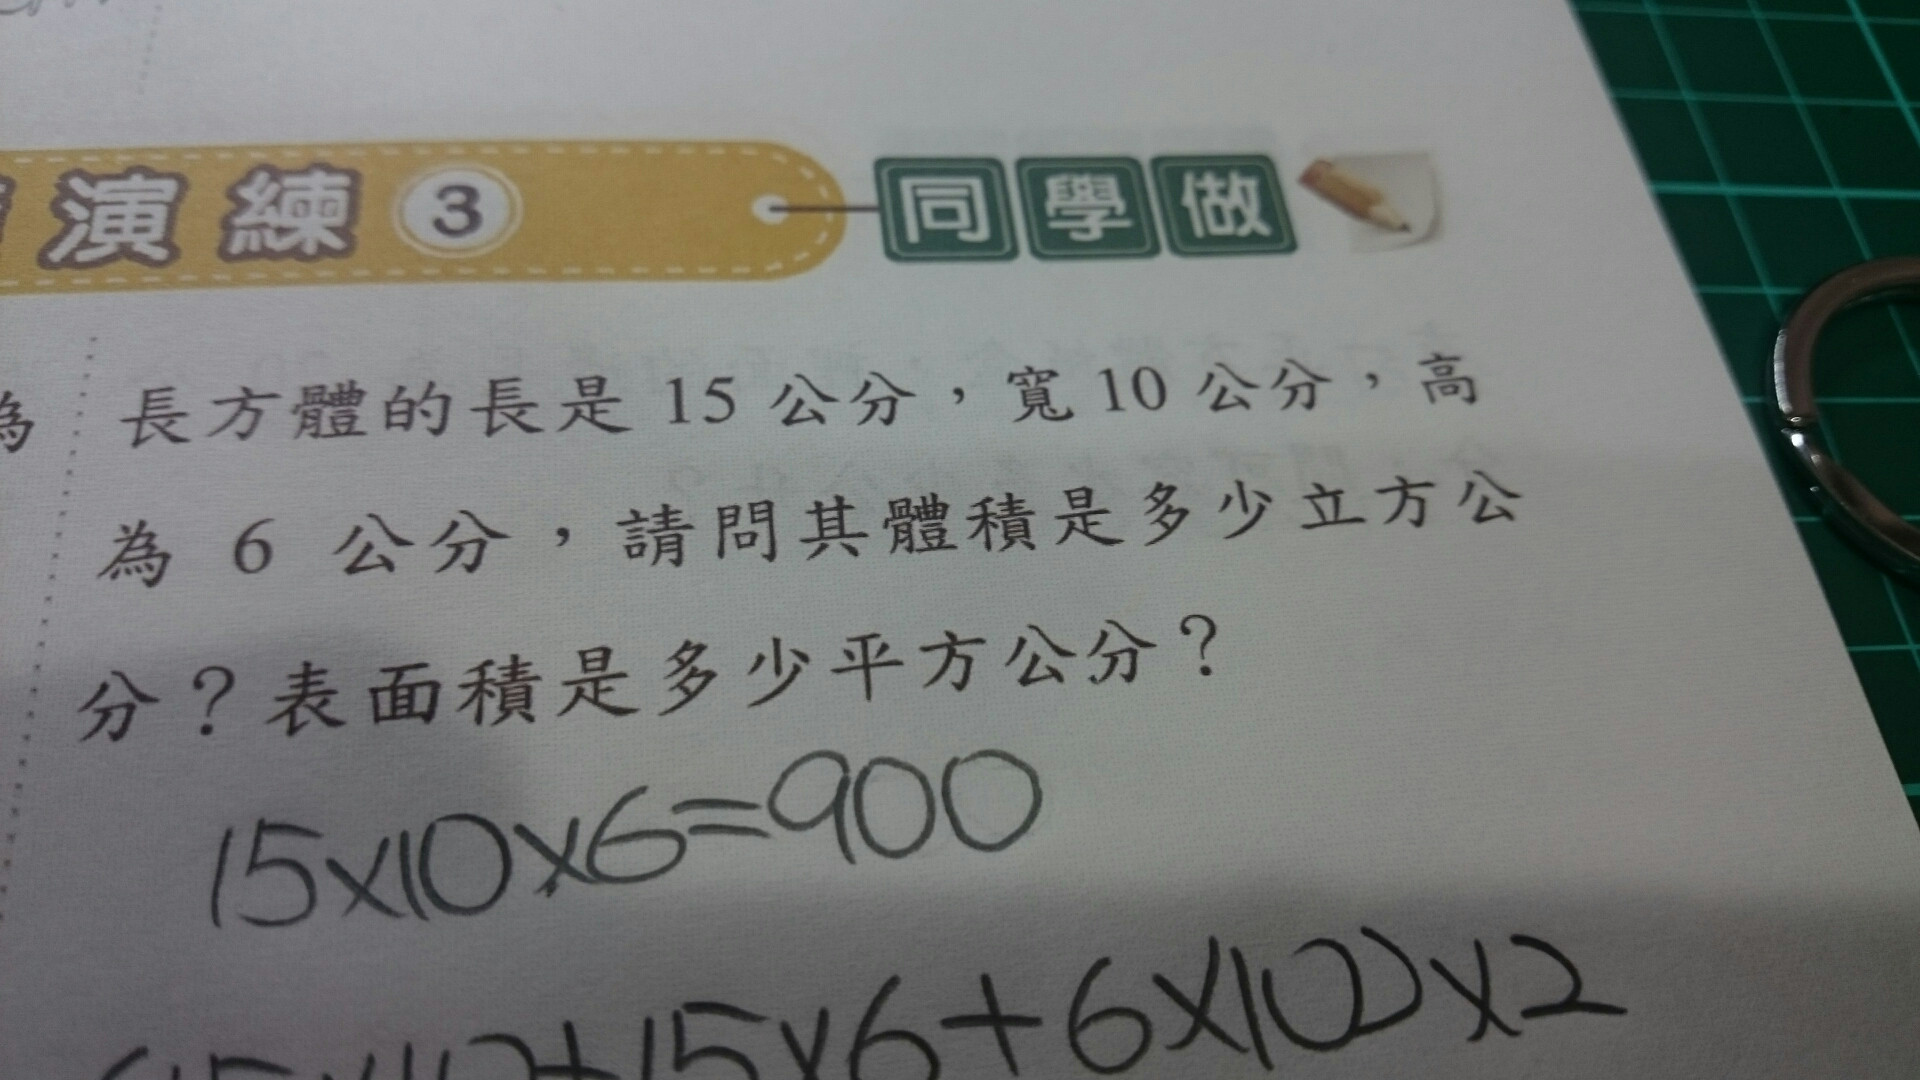 演練 3 同學做
為
長方體的長是 15 公分，寬 10 公分，高
為 6 公分，請問其體積是多少立方公
分？表面積是多少平方公分？
15×10×6=900
(15×10+15×6+6×10)×2